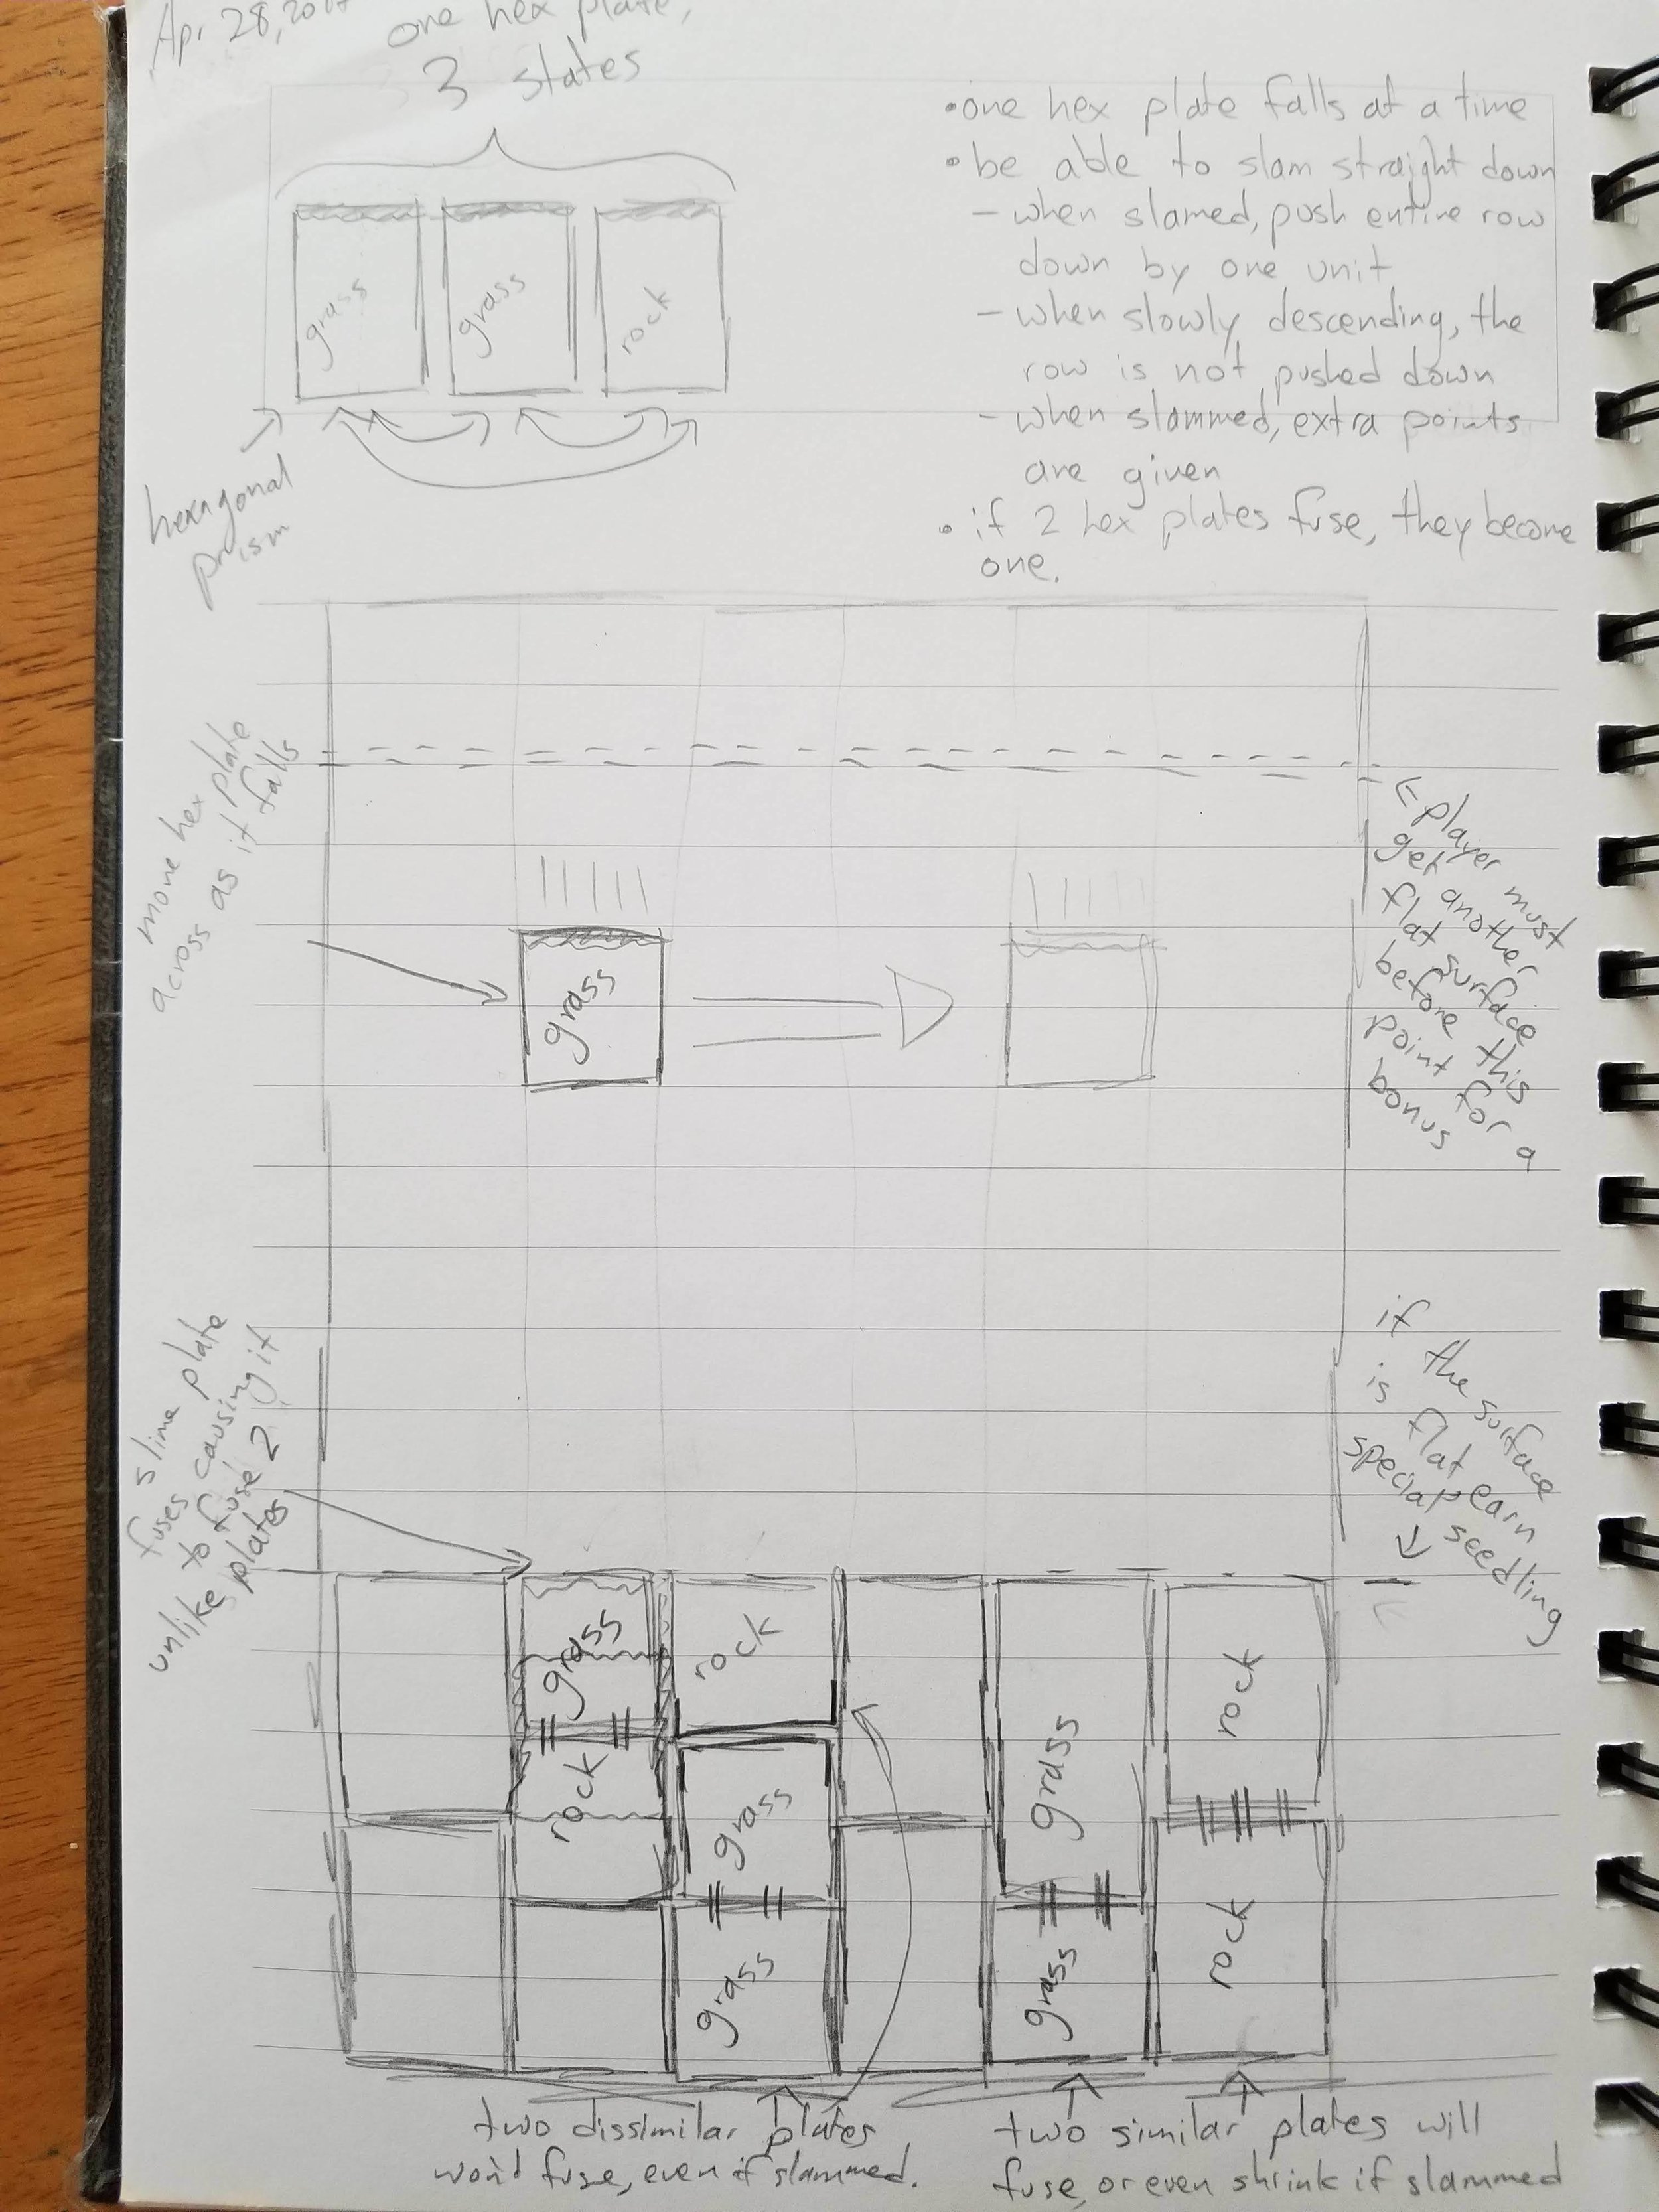 Apr 28,
one hex plate,
3 states
grass
grass
rock
hexagonal
prism
•one hex plate falls at a time
•be able to slam straight down
- when slamed, push entire row
down by one unit
- when slowly descending, the
row is not pushed down
- when slammed, extra points
are given
• if 2 hex plates fuse, they become
one.
move hex plate
across as it falls
grass
player must
get another
flat surface
before this
point for a
bonus
slime plate
fuses causing it
to fuse 2
unlike plates
if the surface
is flat earn
special seedling
grass
rock
rock
grass
grass
grass
grass
rock
rock
two dissimilar plates
won't fuse, even if slammed.
two similar plates will
fuse, or even shrink if slammed